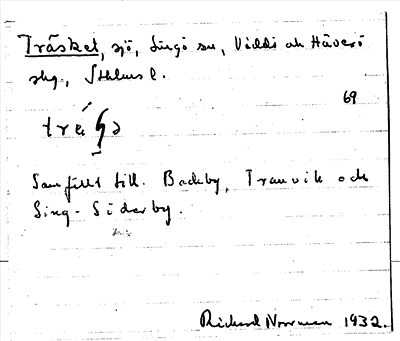 Träsket, sjö, Singö sn, Väddö och Häverö
skg, Sthlms l.
69
Samfällt till Backby, Tranvik och
Sing-Söderby.
Rickard Norrman 1932.